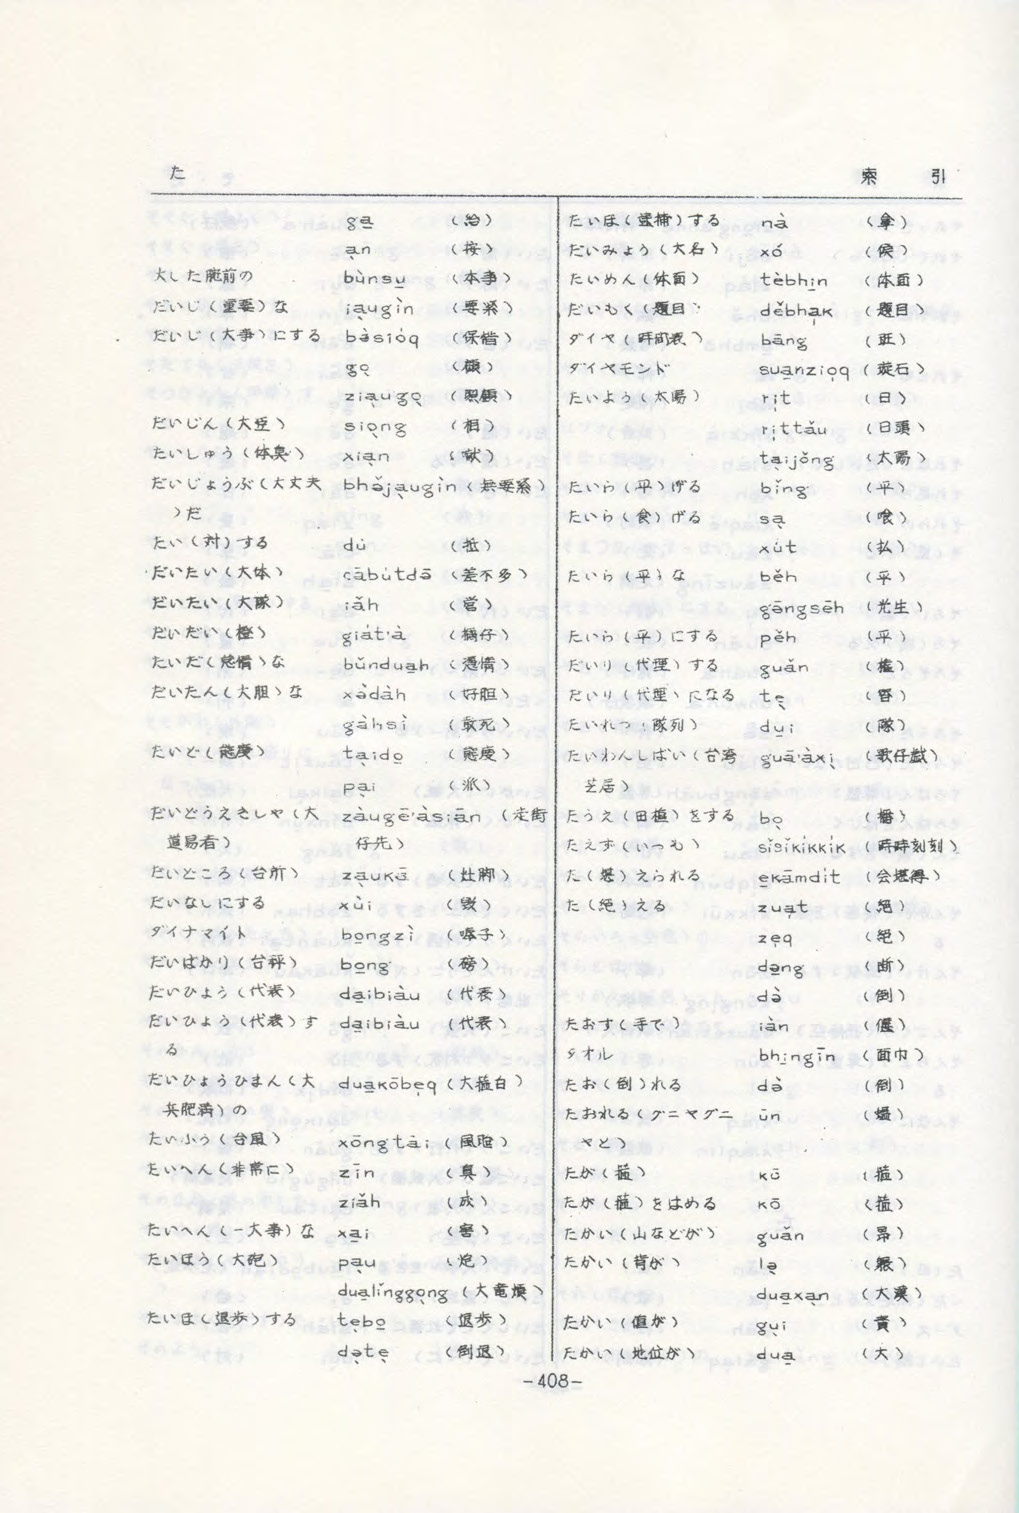 た
索 引
ga (治)
an (按)
大した腕前の bùnsu (本事)
だいじ(重要)な iaugìn (要緊)
だいじ(大事)にする bàsióq (保惜)
go (顧)
ziaugo (照顧)
だいじん(大臣) siong (相)
たいしゅう(体臭) xian
だいじょうぶ(大丈夫 bhǒjaugìn (無要緊)
)だ
たい(対)する dú (抵)
だいたい(大体) cābútdō (差不多)
だいたい(大隊) iǎh (営)
だいだい(橙) giát'à
たいだ(怠惰)な bǔnduah (憑惰)
だいたん(大胆)な xòdàh (好胆)
gàhsì (敢死)
たいど(態度) taido (態度)
pai (派)
だいどうえきしゃ(大 zàugē'àsiān (走街
道易者) 仔先)
だいどころ(台所) zaukā (灶脚)
だいなしにする xùi (毀)
ダイナマイト bongzì
だいばかり(台秤) bong (磅)
だいひょう(代表) daibiàu (代表)
だいひょう(代表)す daibiàu (代表)
る
だいひょうひまん(大 duakōbeq
兵肥満)の
たいふう(台風) xōngtāi (風颱)
たいへん(非常に) zīn (真)
ziǎh (成)
たいへん(一大事)な xai (害)
たいほう(大砲) pau (炮)
dualǐnggong (大竜熕)
たいほ(退歩)する tebo (退歩)
dote (倒退)
たいほ(逮捕)する nà
だいみょう(大名) xó (侯)
たいめん(体面) tèbhin (体面)
だいもく(題目) děbhak (題目)
ダイヤ(時間表) bāng (班)
ダイヤモンド suanzioq (璇石)
たいよう(太陽) rit (日)
rittǎu (日頭)
taijǒng (太陽)
たいら(平)げる bǐng (平)
たいら(食)げる sa
xút (払)
たいら(平)な běh (平)
gāngsēh (光生)
たいら(平)にする pěh (平)
だいり(代理)する guǎn (権)
だいり(代理)になる te (替)
たいれつ(隊列) dui (隊)
たいわんしばい(台湾 guā'àxi (歌仔戯)
芝居)
たうえ(田植)をする bo (播)
たえず(いつも) sǐsǐkikkik (時時刻刻)
た(堪)えられる ekāmdit (会堪得)
た(絶)える zuat (絶)
zeq (絶)
dng (断)
dò (倒)
たおす(手で) iàn (偃)
タオル bhingīn (面巾)
たお(倒)れる dò (倒)
たおれる(グニャグニ ūn
ャと) 
たが(箍) kō (箍)
たが(箍)をはめる kō (箍)
たかい(山などが) guǎn
たかい(背が) lo
duaxan (大漢)
たかい(値が) gui (貴)
たかい(地位が) dua (大)
-408-